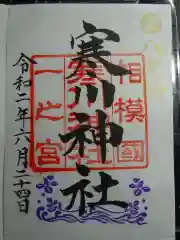 相模國
一之宮
寒川神社
令和二年六月二十四日